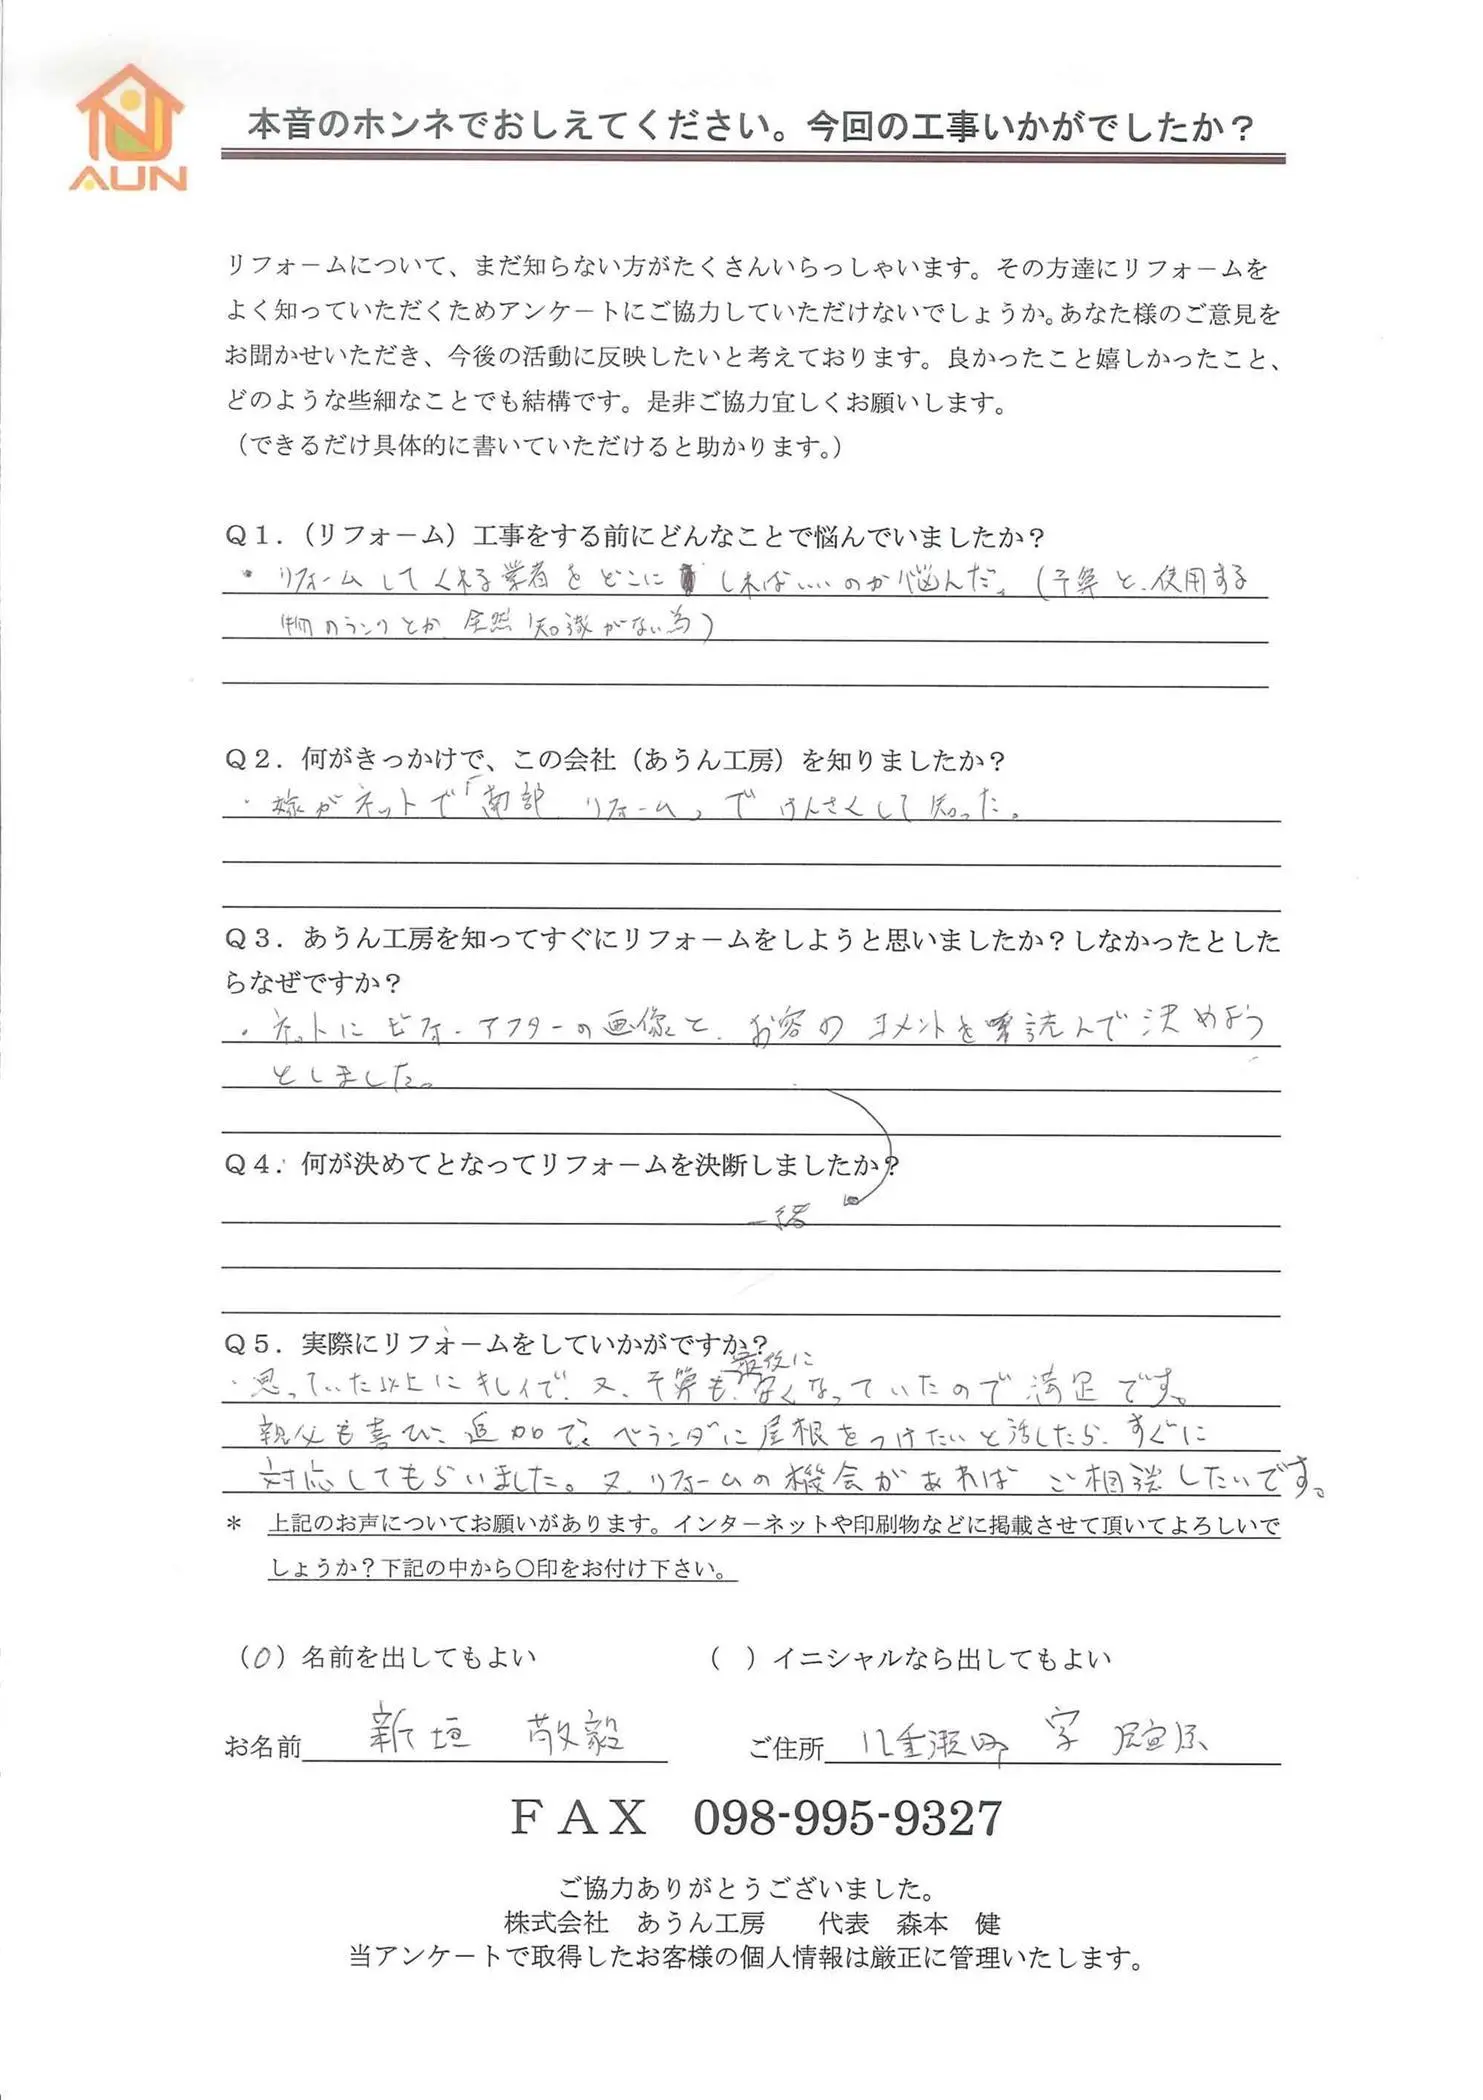 AUN
本音のホンネでおしえてください。今回の工事いかがでしたか？
リフォームについて、まだ知らない方がたくさんいらっしゃいます。その方達にリフォームを
よく知っていただくためアンケートにご協力していただけないでしょうか。あなた様のご意見を
お聞かせいただき、今後の活動に反映したいと考えております。良かったこと嬉しかったこと、
どのような些細なことでも結構です。是非ご協力宜しくお願いします。
（できるだけ具体的に書いていただけると助かります。）
Ｑ１．（リフォーム）工事をする前にどんなことで悩んでいましたか？
・リフォームしてくれる業者をどこにしればいいのか悩んだ。（予算と、使用する
物のランクとか、全然知識がない為）
Ｑ２．何がきっかけで、この会社（あうん工房）を知りましたか？
・嫁がネットで「南部 リフォーム」でけんさくして知った。
Ｑ３．あうん工房を知ってすぐにリフォームをしようと思いましたか？しなかったとした
らなぜですか？
・ネットにビフォーアフターの画像と、お客のコメントを読んで決めよう
としました。
Ｑ４．何が決めてとなってリフォームを決断しましたか？
一緒
Ｑ５．実際にリフォームをしていかがですか？
・思っていた以上にキレイで、又、予算も最後に安くなっていたので満足です。
親父も喜び、追加で、ベランダに屋根をつけたいと話したら、すぐに
対応してもらいました。又、リフォームの機会があれば ご相談したいです。
＊ 上記のお声についてお願いがあります。インターネットや印刷物などに掲載させて頂いてよろしいで
しょうか？下記の中から〇印をお付け下さい。
（〇）名前を出してもよい （ ）イニシャルなら出してもよい
お名前 新垣 敬毅 ご住所 八重瀬町 字 屋宜原
ＦＡＸ 098-995-9327
ご協力ありがとうございました。
株式会社 あうん工房 代表 森本 健
当アンケートで取得したお客様の個人情報は厳正に管理いたします。